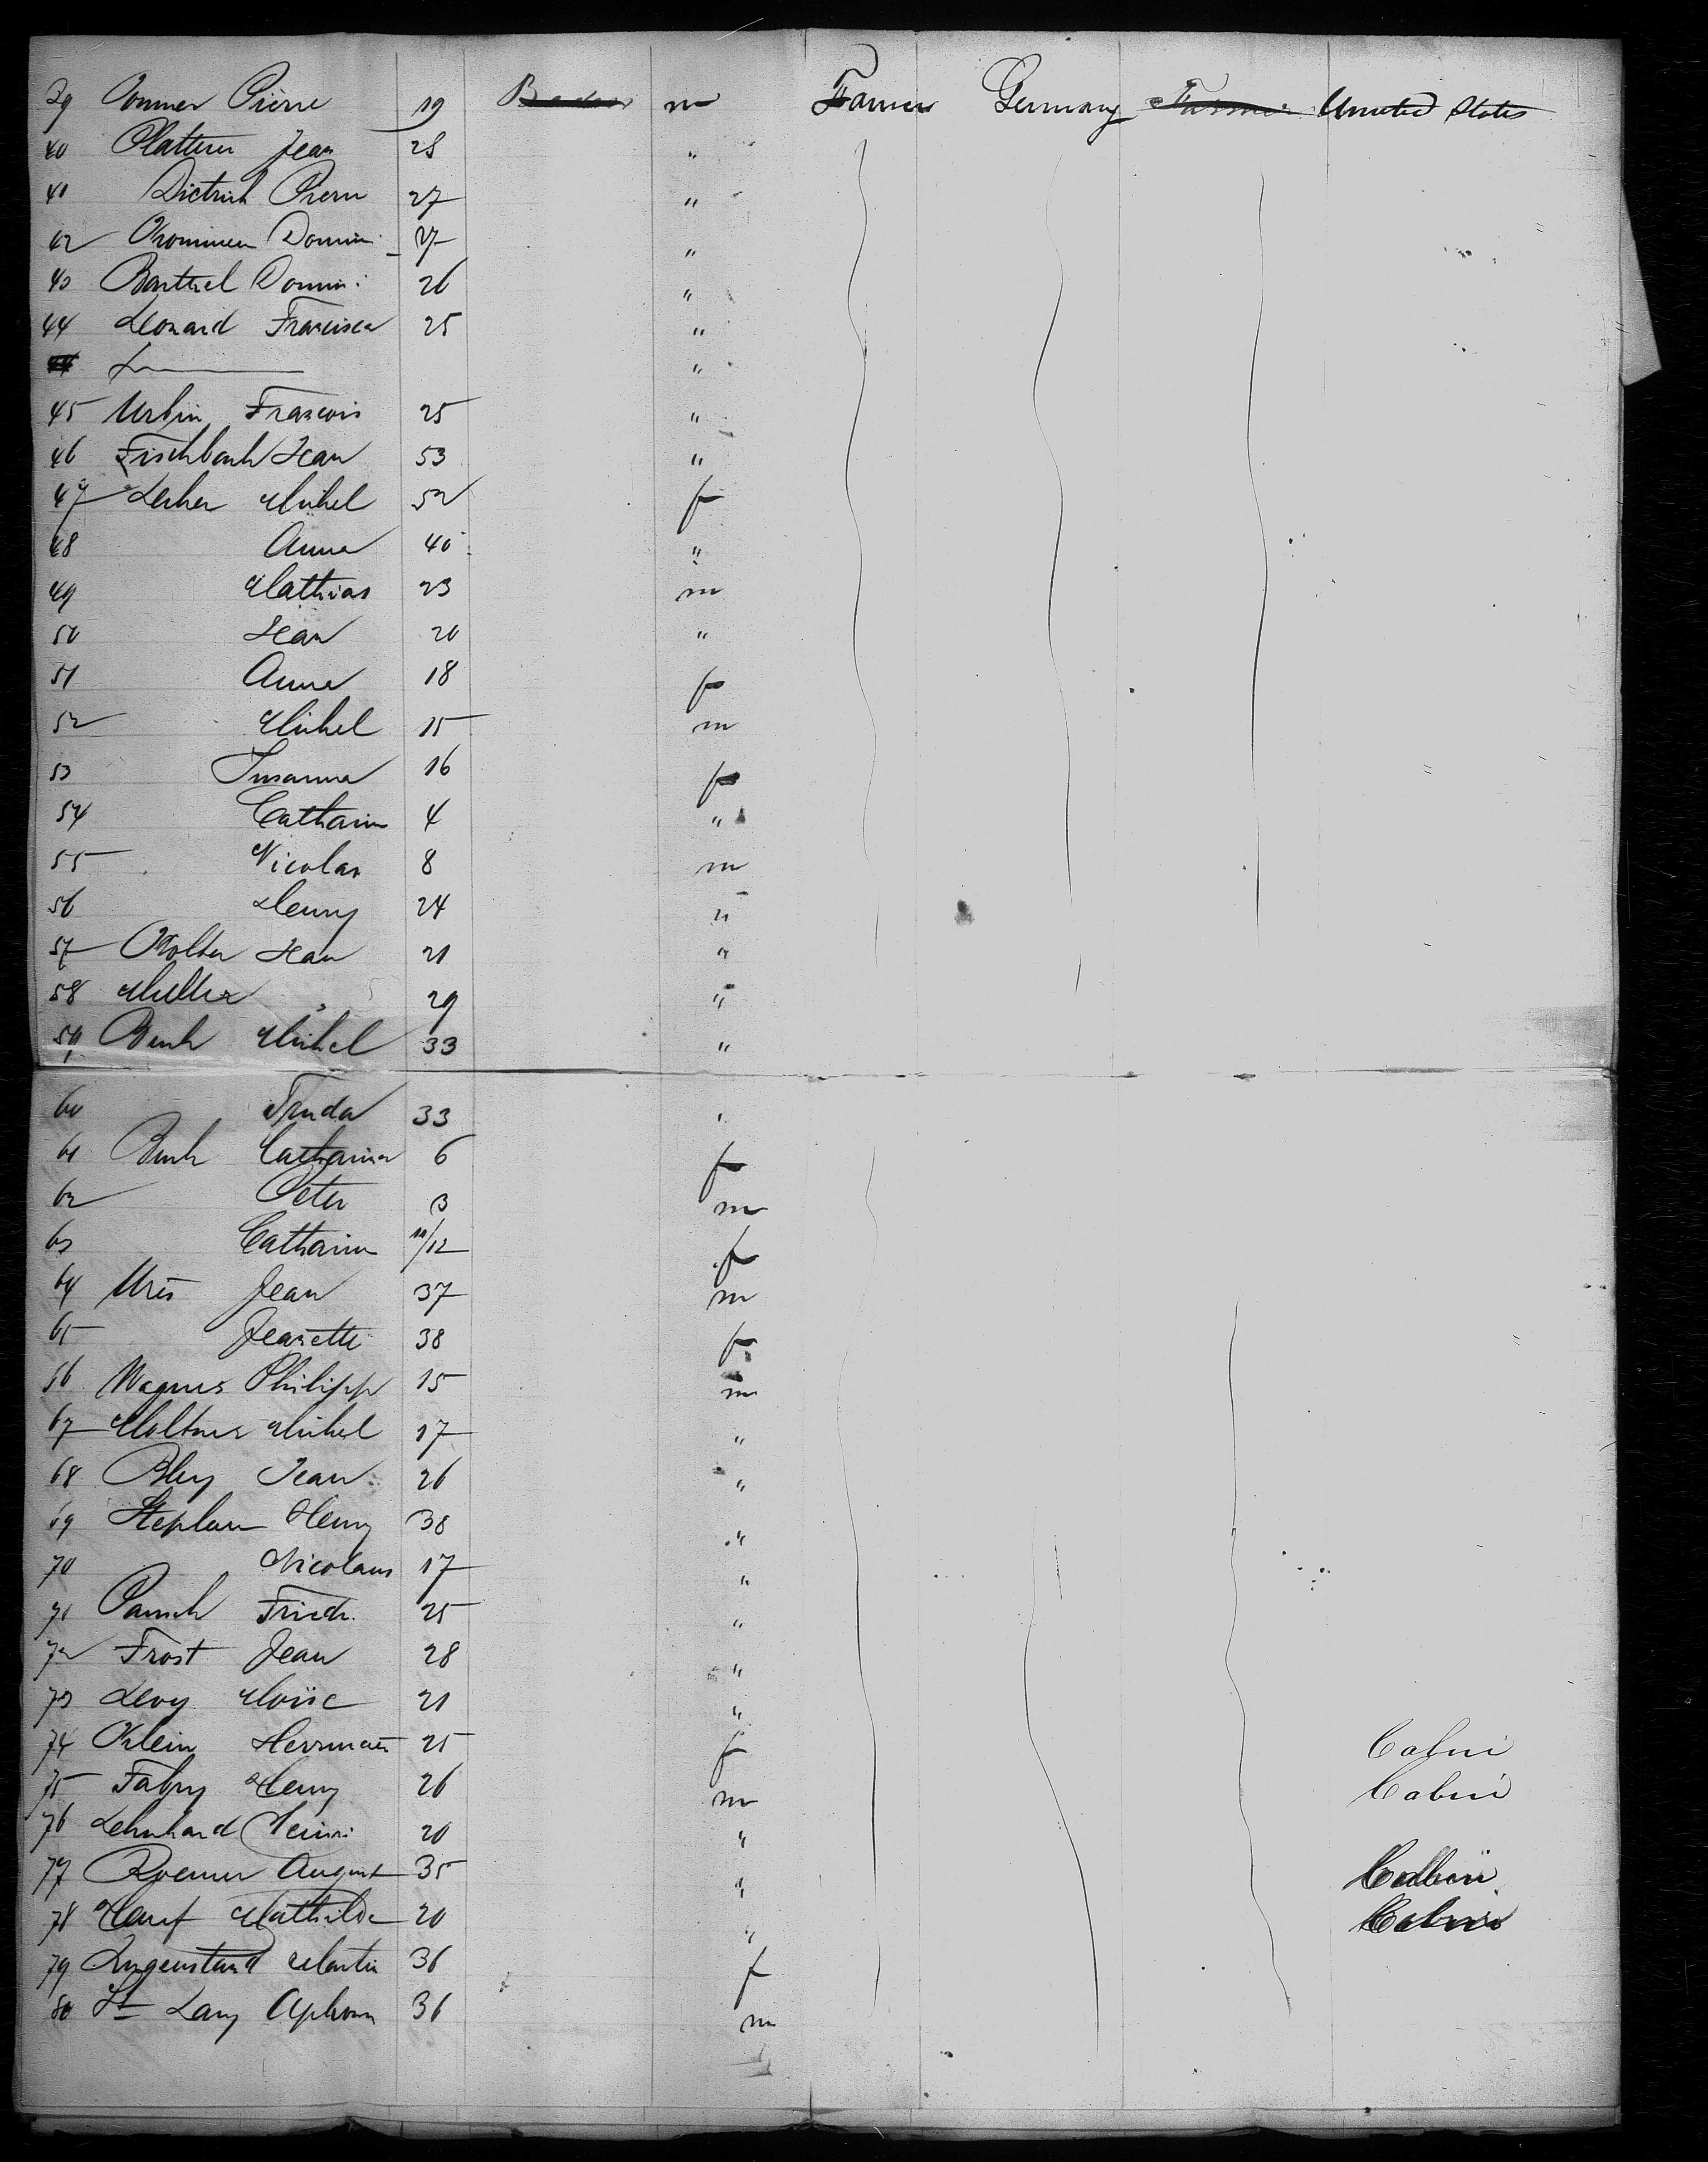 39 Pierre 19 m Farmer Germany Farmer United States
40 Jean 28 "
41 Dietrich Pierre 27 "
42 27 "
43 Barthel Domini: 26 "
44 Leonard Francisca 25 "
44 L "
45 Urbin Francois 25 "
46 Fischbach Jean 53 "
47 Michel 52 f
48 Anna 40 "
49 Mathias 23 m
50 Jean 20 "
51 Anna 18 f
52 Michel 15 m
53 Susanna 16 f
54 Catharin 4 "
55 Nicolas 8 m
56 Henry 24 "
57 Jean 21 "
58 Muller " 29 "
59 Michel 33 "
60 33
61 Catharina 6 f
62 Peter 3 m
63 Catharin 11/12 f
64 Jean 37 m
65 Jeanette 38 f
66 Wagner Philipp 15 m
67 Michel 17 "
68 Bley Jean 26 "
69 Stephan Henry 38 "
70 Nicolaus 17 "
71 Friedr. 25 "
72 Frost Jean 28 "
73 Levy Moïse 21 "
74 Klein Hermann 25 f Cabin
75 Fabry Henry 26 m Cabin
76 Lehnhard Henri 20 "
77 Roemer August 35 " Cabin
78 Mathilde 20 " Cabin
79 Martin 36 f
80 36 m